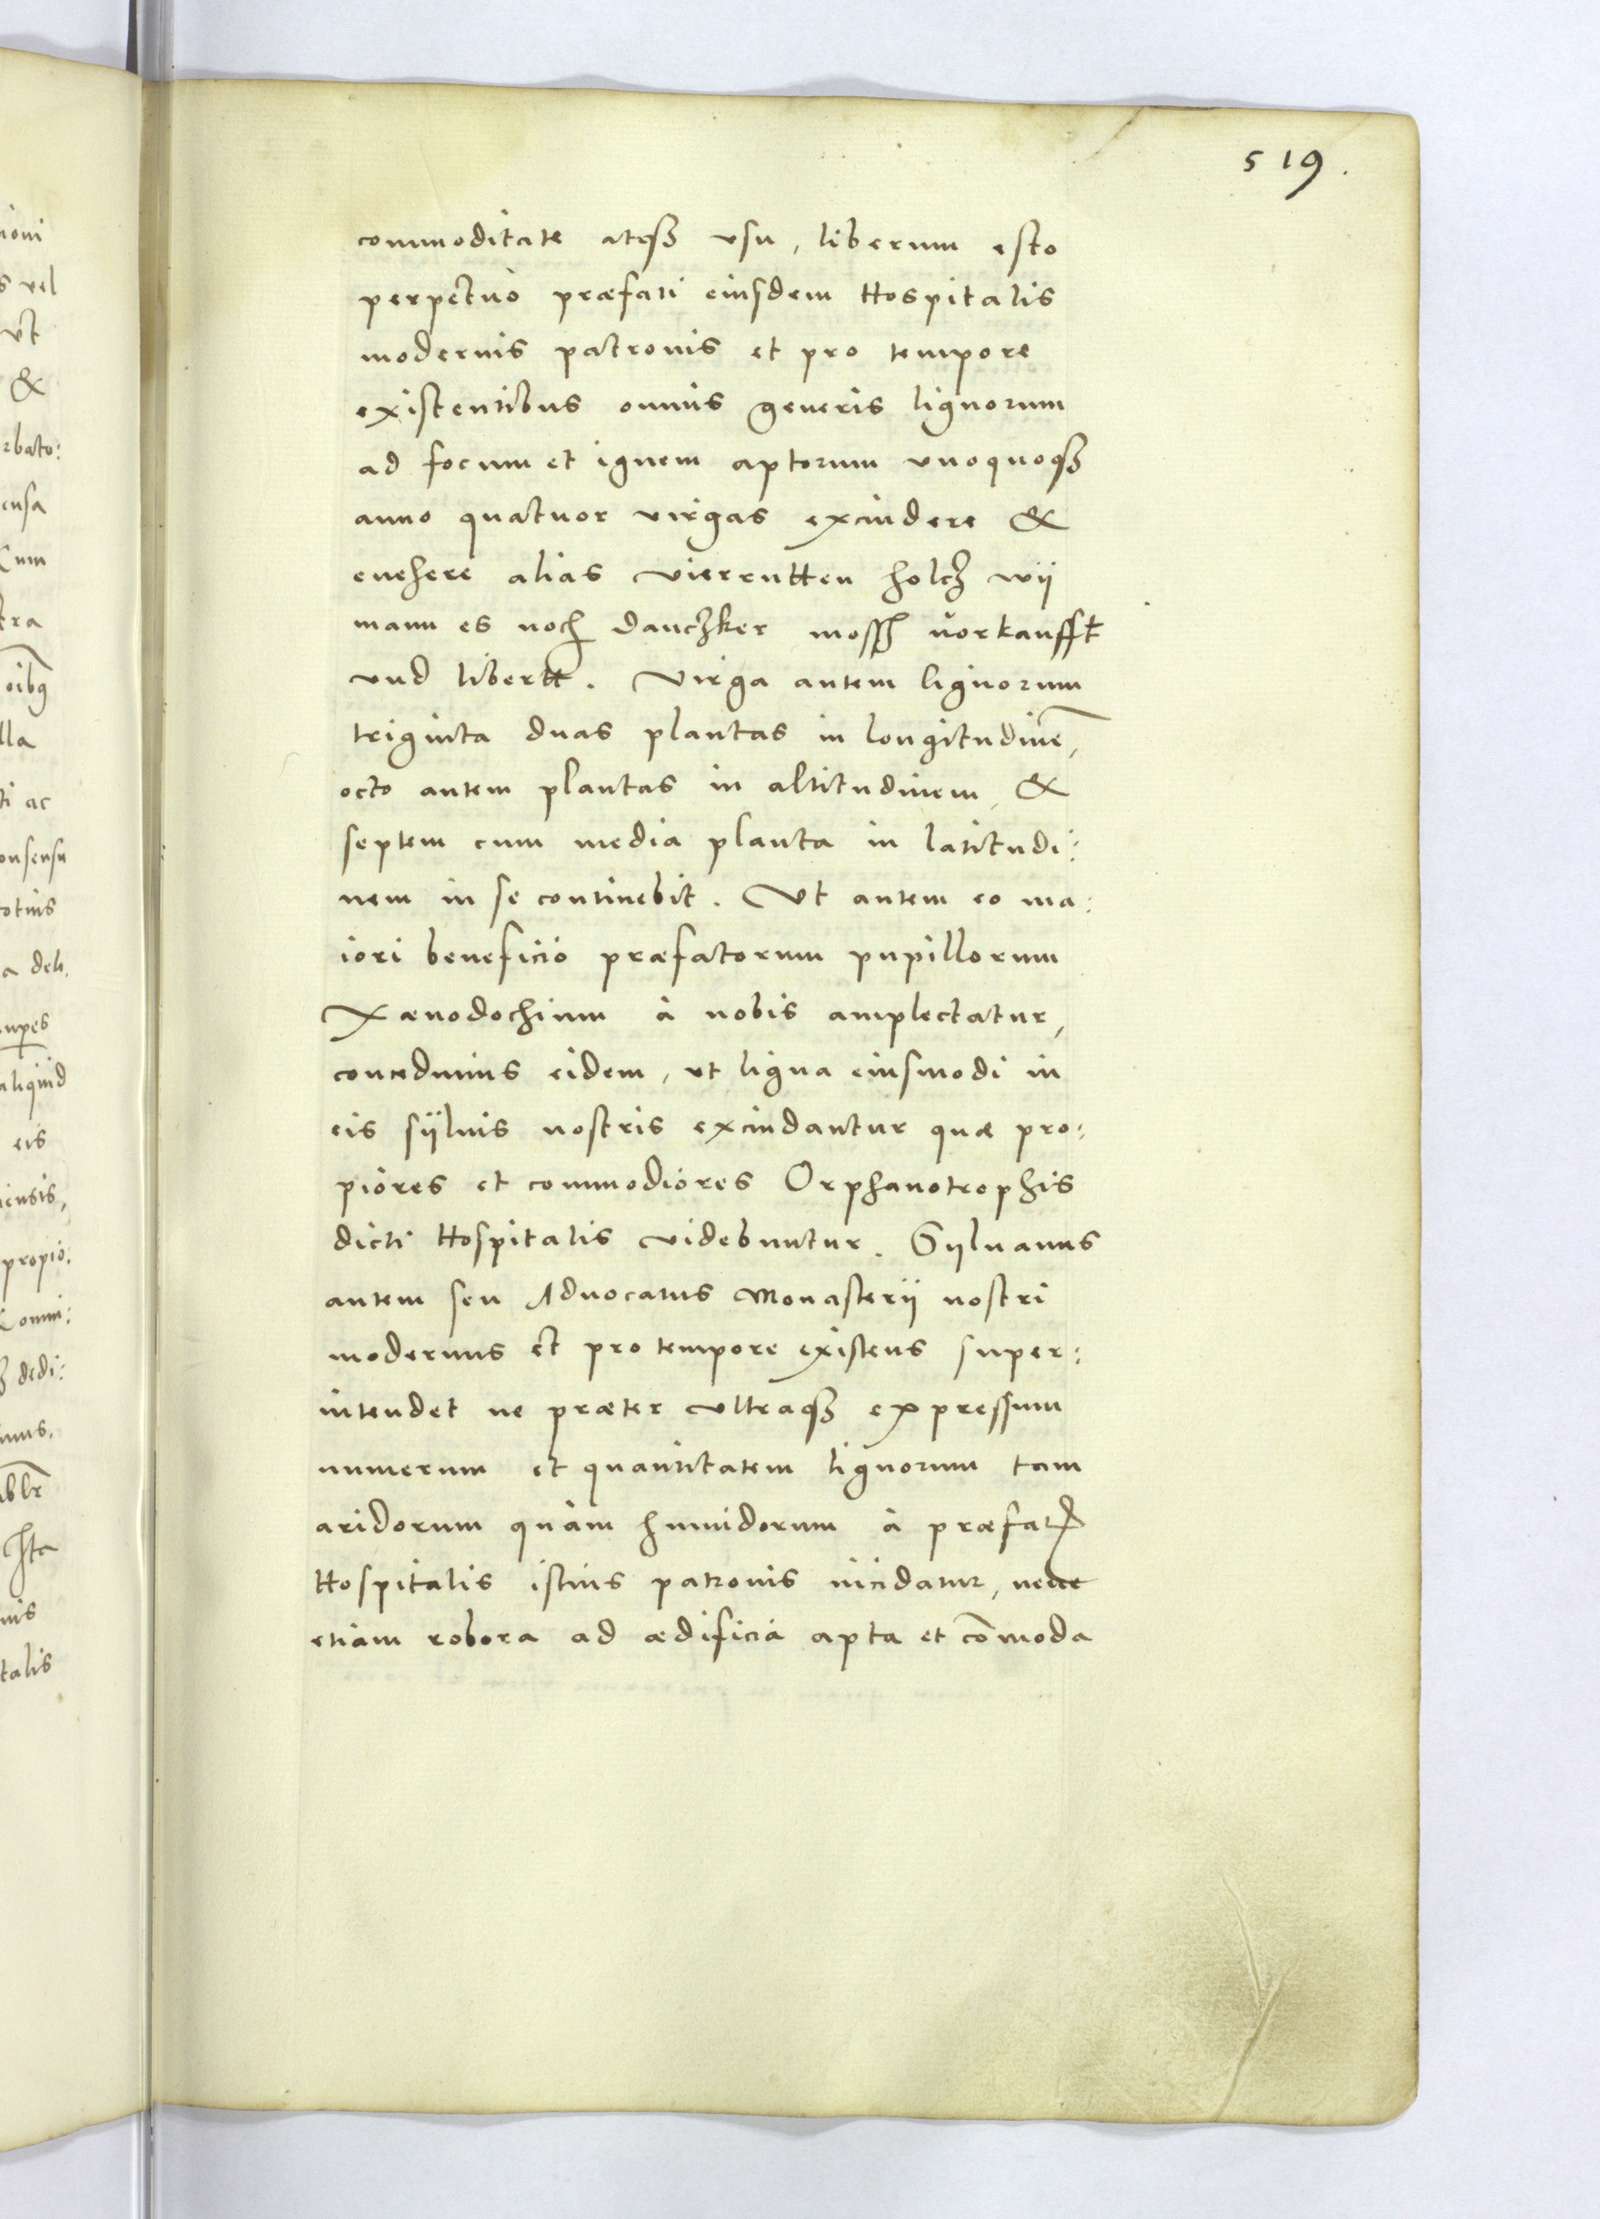 519.
commoditate atqȝ vsu, liberum esto
perpetuò præfati eiusdem Hospitalis
modernis patronis et pro tempore
existentibus omnis generis lignorum
ad focum et ignem aptorum vnoquoqȝ
anno quatuor virgas excindere &
euehere alias vierrutten holcz wij
mann es noch Danczker mossz vorkaufft
vnd libertt. Virga autem lignorum
triginta duas plantas in longitudinē,
octo autem plantas in altitudinem, &
septem cum media planta in latitudi:
nem in se continebit. Vt autem eo ma:
iori beneficio præfatorum pupillorum
Xænodochium à nobis amplectatur,
concedimus eidem, vt ligna eiusmodi in
eis sÿluis nostris excindantur quæ pro:
piores et commodiores Orphanotrophis
dicti Hospitalis videbuntur. Sÿluanus
autem seu Aduocatus Monasterij nostri
modernus et pro tempore existens super:
intendet ne præter vltraqȝ expressum
numerum et quantitatem lignorum tam
aridorum quàm humidorum à præfatꝭ
Hospitalis istius patronis incidatur, neue
etiam robora ad ædificia apta et cōmoda
ioni
s vel
vt
&
rbato:
ensa
Cum
tra
oibꝗ
lla
ti ac
onsensu
totius
a deli.
aliquid
eis
iensis,
propio:
omni:
dedi:
imus.
cta
nis
talis